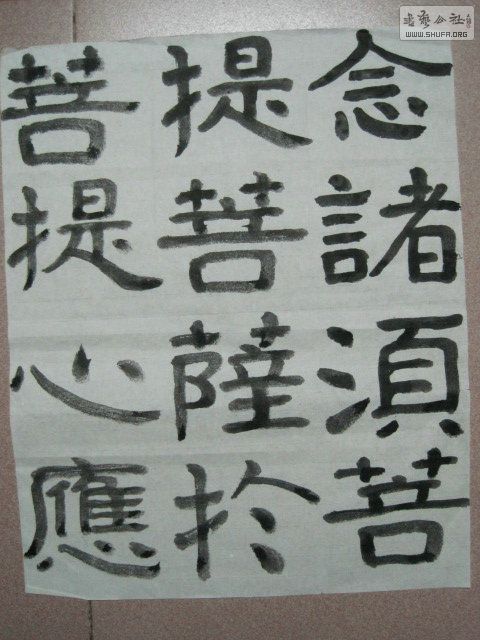 念諸湏菩
提菩薩扵
菩提心應
書藝公社
WWW.SHUFA.ORG